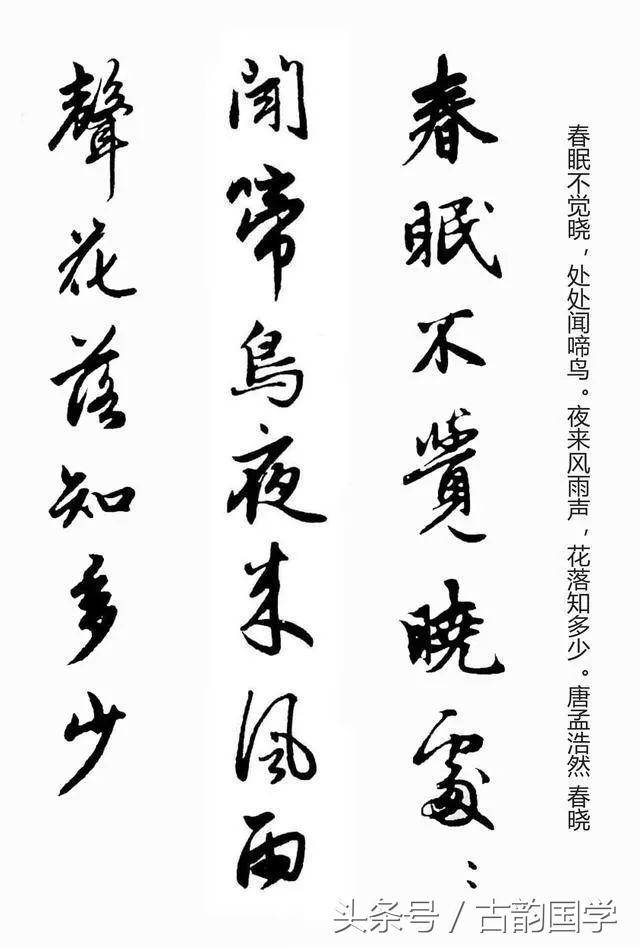 春眠不觉晓,处处闻啼鸟。夜来风雨声,花落知多少。唐孟浩然 春晓
春眠不覺曉處〻
聞啼鳥夜来風雨
聲花落知多少
头条号/古韵国学